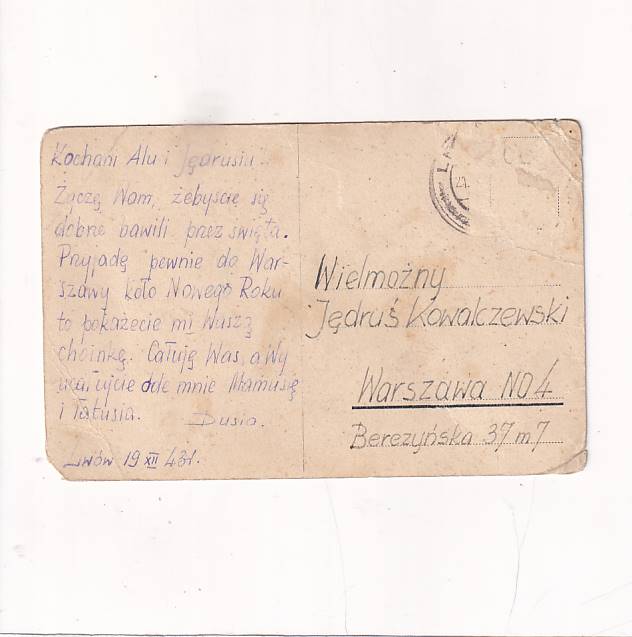 Kochani Alu i Jędrusiu.
Życzę Wam, żebyście się
dobrze bawili przez święta.
Przyjadę pewnie do War-
szawy koło Nowego Roku
to pokażecie mi Waszą
choinkę. Całuję Was, a Wy
ucałujcie ode mnie Mamusię
i Tatusia. Dusia.
Lwów 19 XII 43r.
Wielmożny
Jędruś Kowalczewski
Warszawa NO4
Berezyńska 37 m 7